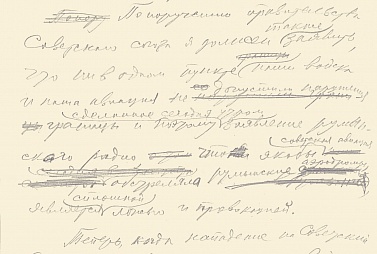 По поручению правительства
Советского союза я должен также заявить,
что ни в одном пункте наши войска
и наша авиация не допустили нарушения
границы и поэтому сделанное сегодня утром заявление румын-
ского радио что якобы советская авиация
обстреляла румынские аэродромы
является сплошной ложью и провокацией.
Теперь, когда нападение на Советский